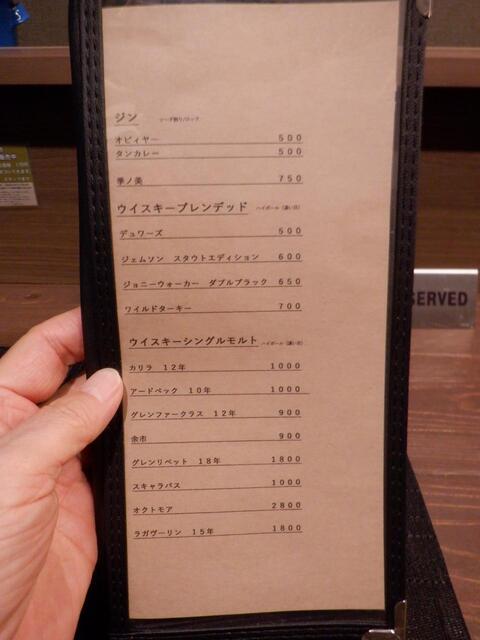 ジン ソーダ割り/ロック
オピィヤー 500
タンカレー 500
季ノ美 750
ウイスキーブレンデッド ハイボール (濃い目)
デュワーズ 500
ジェムソン スタウトエディション 600
ジョニーウォーカー ダブルブラック 650
ワイルドターキー 700
ウイスキーシングルモルト ハイボール (濃い目)
カリラ 12年 1000
アードベック 10年 1000
グレンファークラス 12年 900
余市 900
グレンリベット 18年 1800
スキャラバス 1000
オクトモア 2800
ラガヴーリン 15年 1800
SERVED